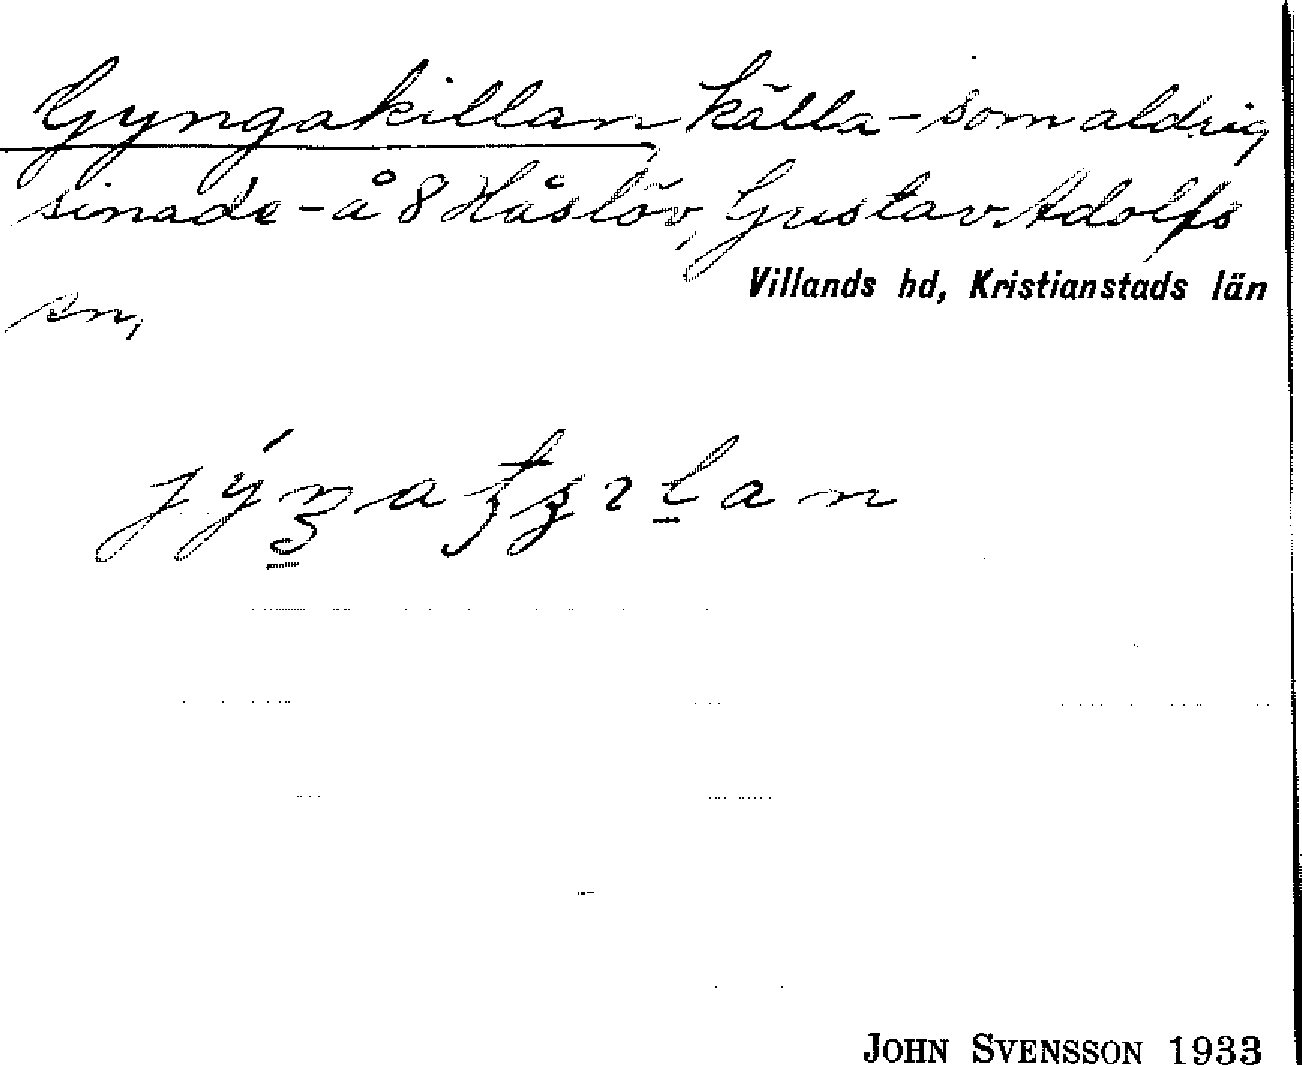 Gyngakillan källa - som aldrig
sinade - å 8 Håslöv, Gustav Adolfs
sn,
Villands hd, Kristianstads län
JOHN SVENSSON 1933